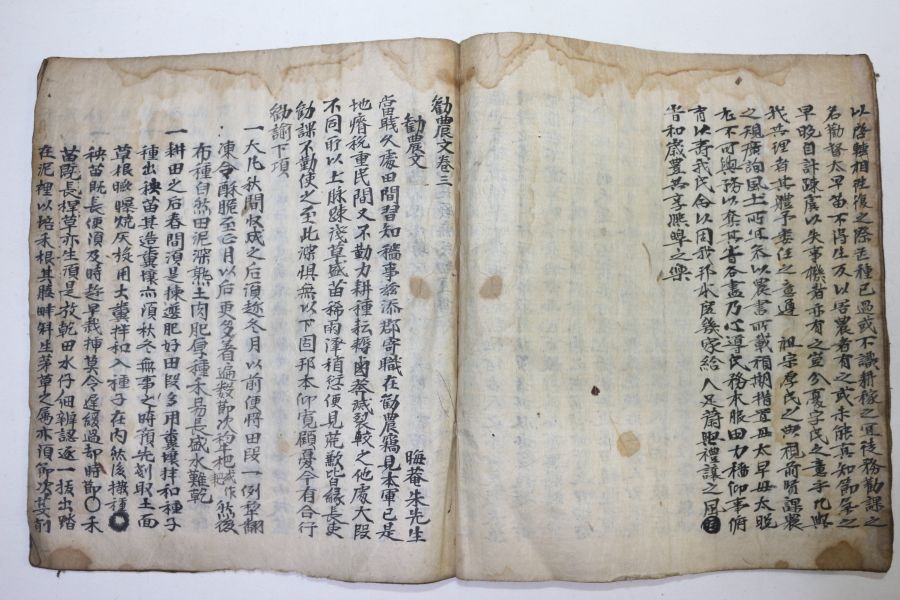 以啓轉相徃復之際芒種已過或不識耕稼之宜徒務勸課之
名勸督太早苗不得生反以害農者有之或未能真知節氣之
早晚自計踈虞以失事機者亦有之豈分憂字民之意乎凡與
我共理者其體予委任之意遵 祖宗厚民之典視前賢課農
之規廣詢風土所宜參以農書所載預期措置毋太早毋太晚
尤不可興務以奪其時各盡乃心導民務本服田力穡仰事俯
育以壽我民命以固我邦本庶幾家給人足蔚興禮讓之風
昔和歲豊共享熙皥之樂
勸農文卷三
勸農文 晦菴朱先生
當職久處田間習知穡事玆添郡寄職在勸農竊見本軍已是
地瘠稅重民間又不勤力耕種耘耨鹵莽滅裂較之他處大段
不同所以土脉踈淺草盛苗稀雨澤稍愆便見荒歉皆緣長吏
勸課不勤使之至此深惧無以下固邦本仰寬顧憂今有合行
勸諭下項
一大凡秋間収成之后須趂冬月以前便將田段一例犁翻
凍令酥脆至正月以后更多着遍數節次犁杷然後
布種自然田泥深熟土肉肥厚種禾易長盛水難乾
一耕田之后春間須是揀選肥好田段多用糞壤拌和種子
種出秧苗其造糞壤亦須秋冬無事之時預先剗取土面
草根晒曝燒灰旋用大糞拌和入種子在內然後撒種
一秧苗旣長便須及時趂早栽揷莫令遲緩過却時節〇禾
苗旣長稈草亦生須是放乾田水仔細辨認逐一拔出踏
在泥裡以培禾根其塍畔斜生茅草之屬亦須節次芟削